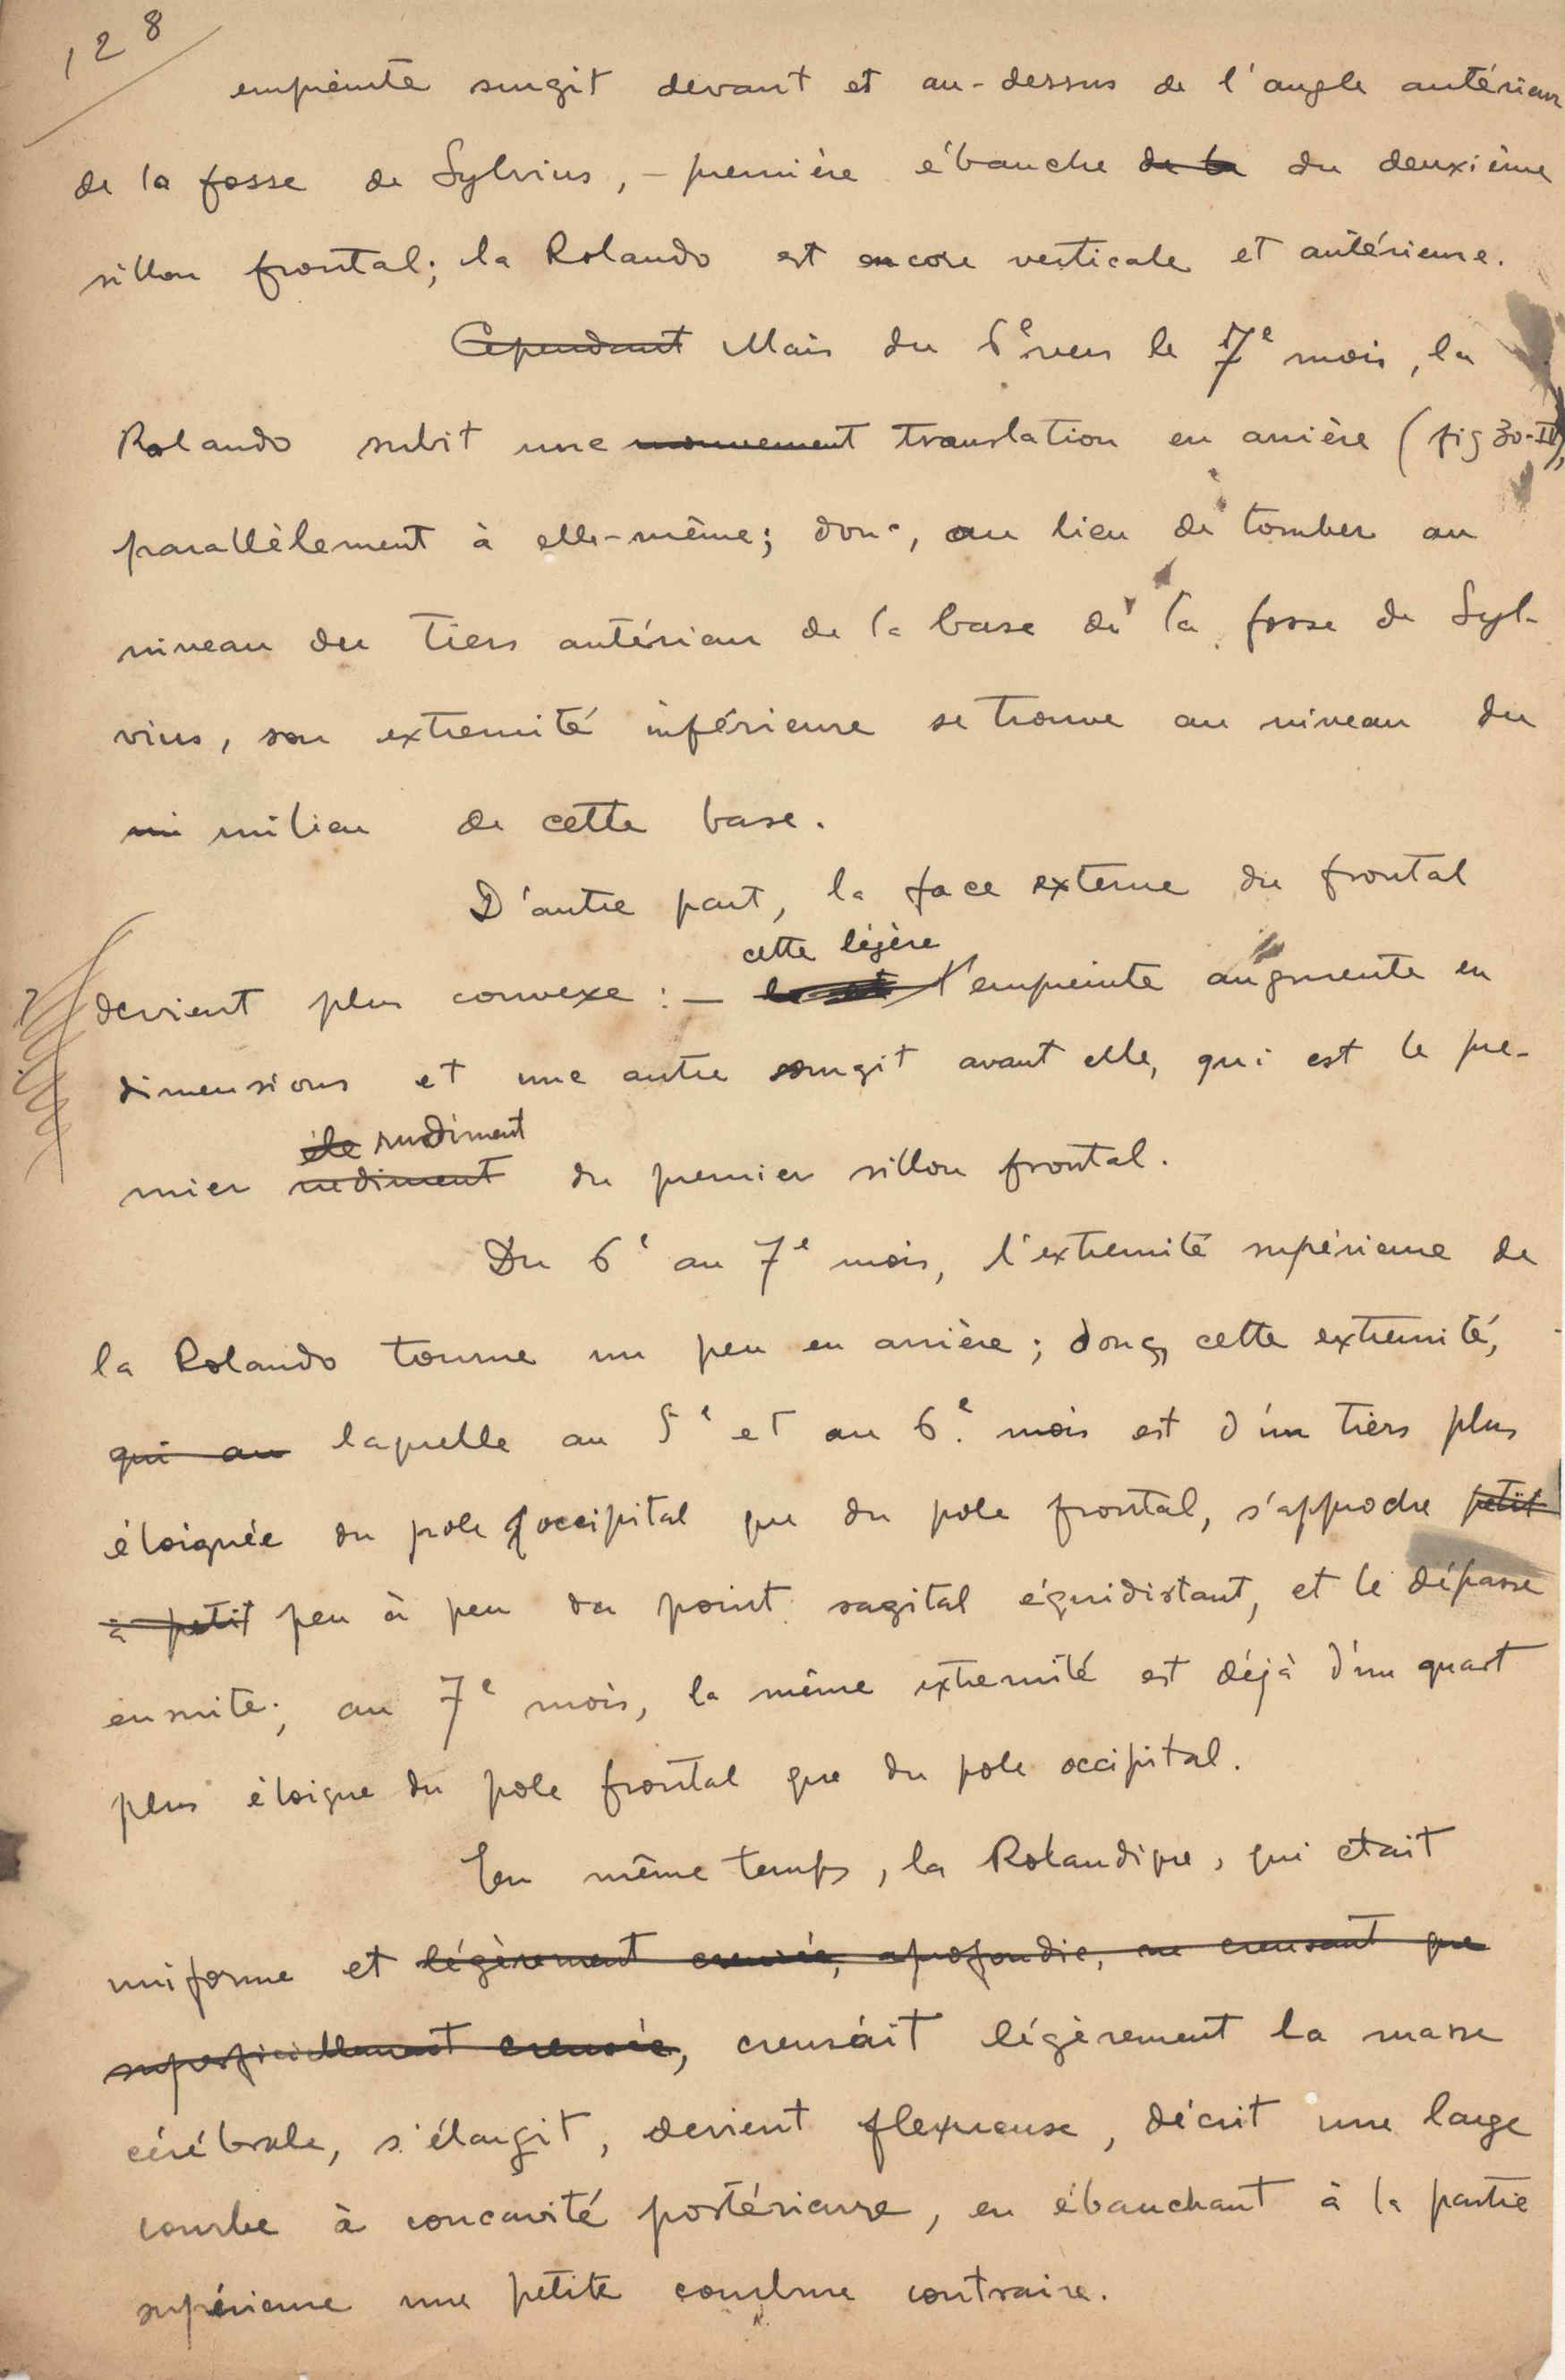 128
empreinte surgit devant et au-dessus de l'angle antérieur
de la fosse de Sylvius, - première ébauche de la du deuxième
sillon frontal; la Rolando est encore verticale et antérieure.
Cependant Mais du 6e vers le 7e mois, la
Rolando subit une mouvement translation en arrière (fig 30-II),
parallèlement à elle-même; donc, au lieu de tomber au
niveau du tiers antérieur de la base de la fosse de Syl-
vius, son extremité inférieure se trouve au niveau du
mi milieu de cette base.
D'autre part, la face externe du frontal
cette légère
devient plus convexe : - l'empreinte augmente en
dimensions et une autre surgit avant elle, qui est le pre-
éle rudiment
mier rudiment du premier sillon frontal.
Du 6e au 7e mois, l'extremité supérieure de
la Rolando tourne un peu en arrière; donc, cette extremité,
qui au laquelle au 5e et au 6e mois est d'un tiers plus
éloignée du pole occipital que du pole frontal, s'approche petit
à petit peu à peu du point sagital équidistant, et le dépasse
ensuite; au 7e mois, la même extremité est déjà d'un quart
plus éloigne du pole frontal que du pole occipital.
En même temps, la Rolandique, qui etait
uniforme et légèrement creusée, aprofondie, ne creusant que
superficiellement creusée, creusait légèrement la masse
cérébrale, s'élargit, devient flexueuse, décrit une large
courbe à concavité postérieure, en ébauchant à la partie
supérieure une petite courbure contraire.